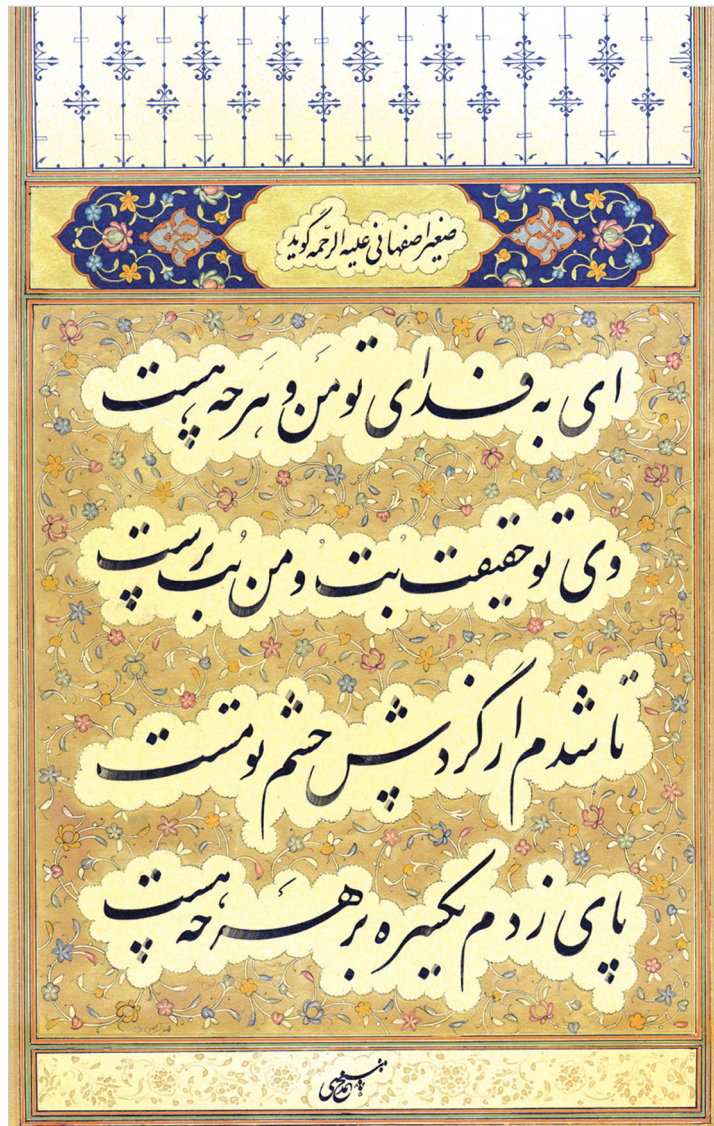 صغیر اصفهانی علیه الرّحمه گوید
ای به فدای تو مَن و هَر چه هست
وی تو حقیقت بُت و من بُت پرست
تا شدم از گردش چشم تو مست
پای زدم یکسره بر هَر چه هست